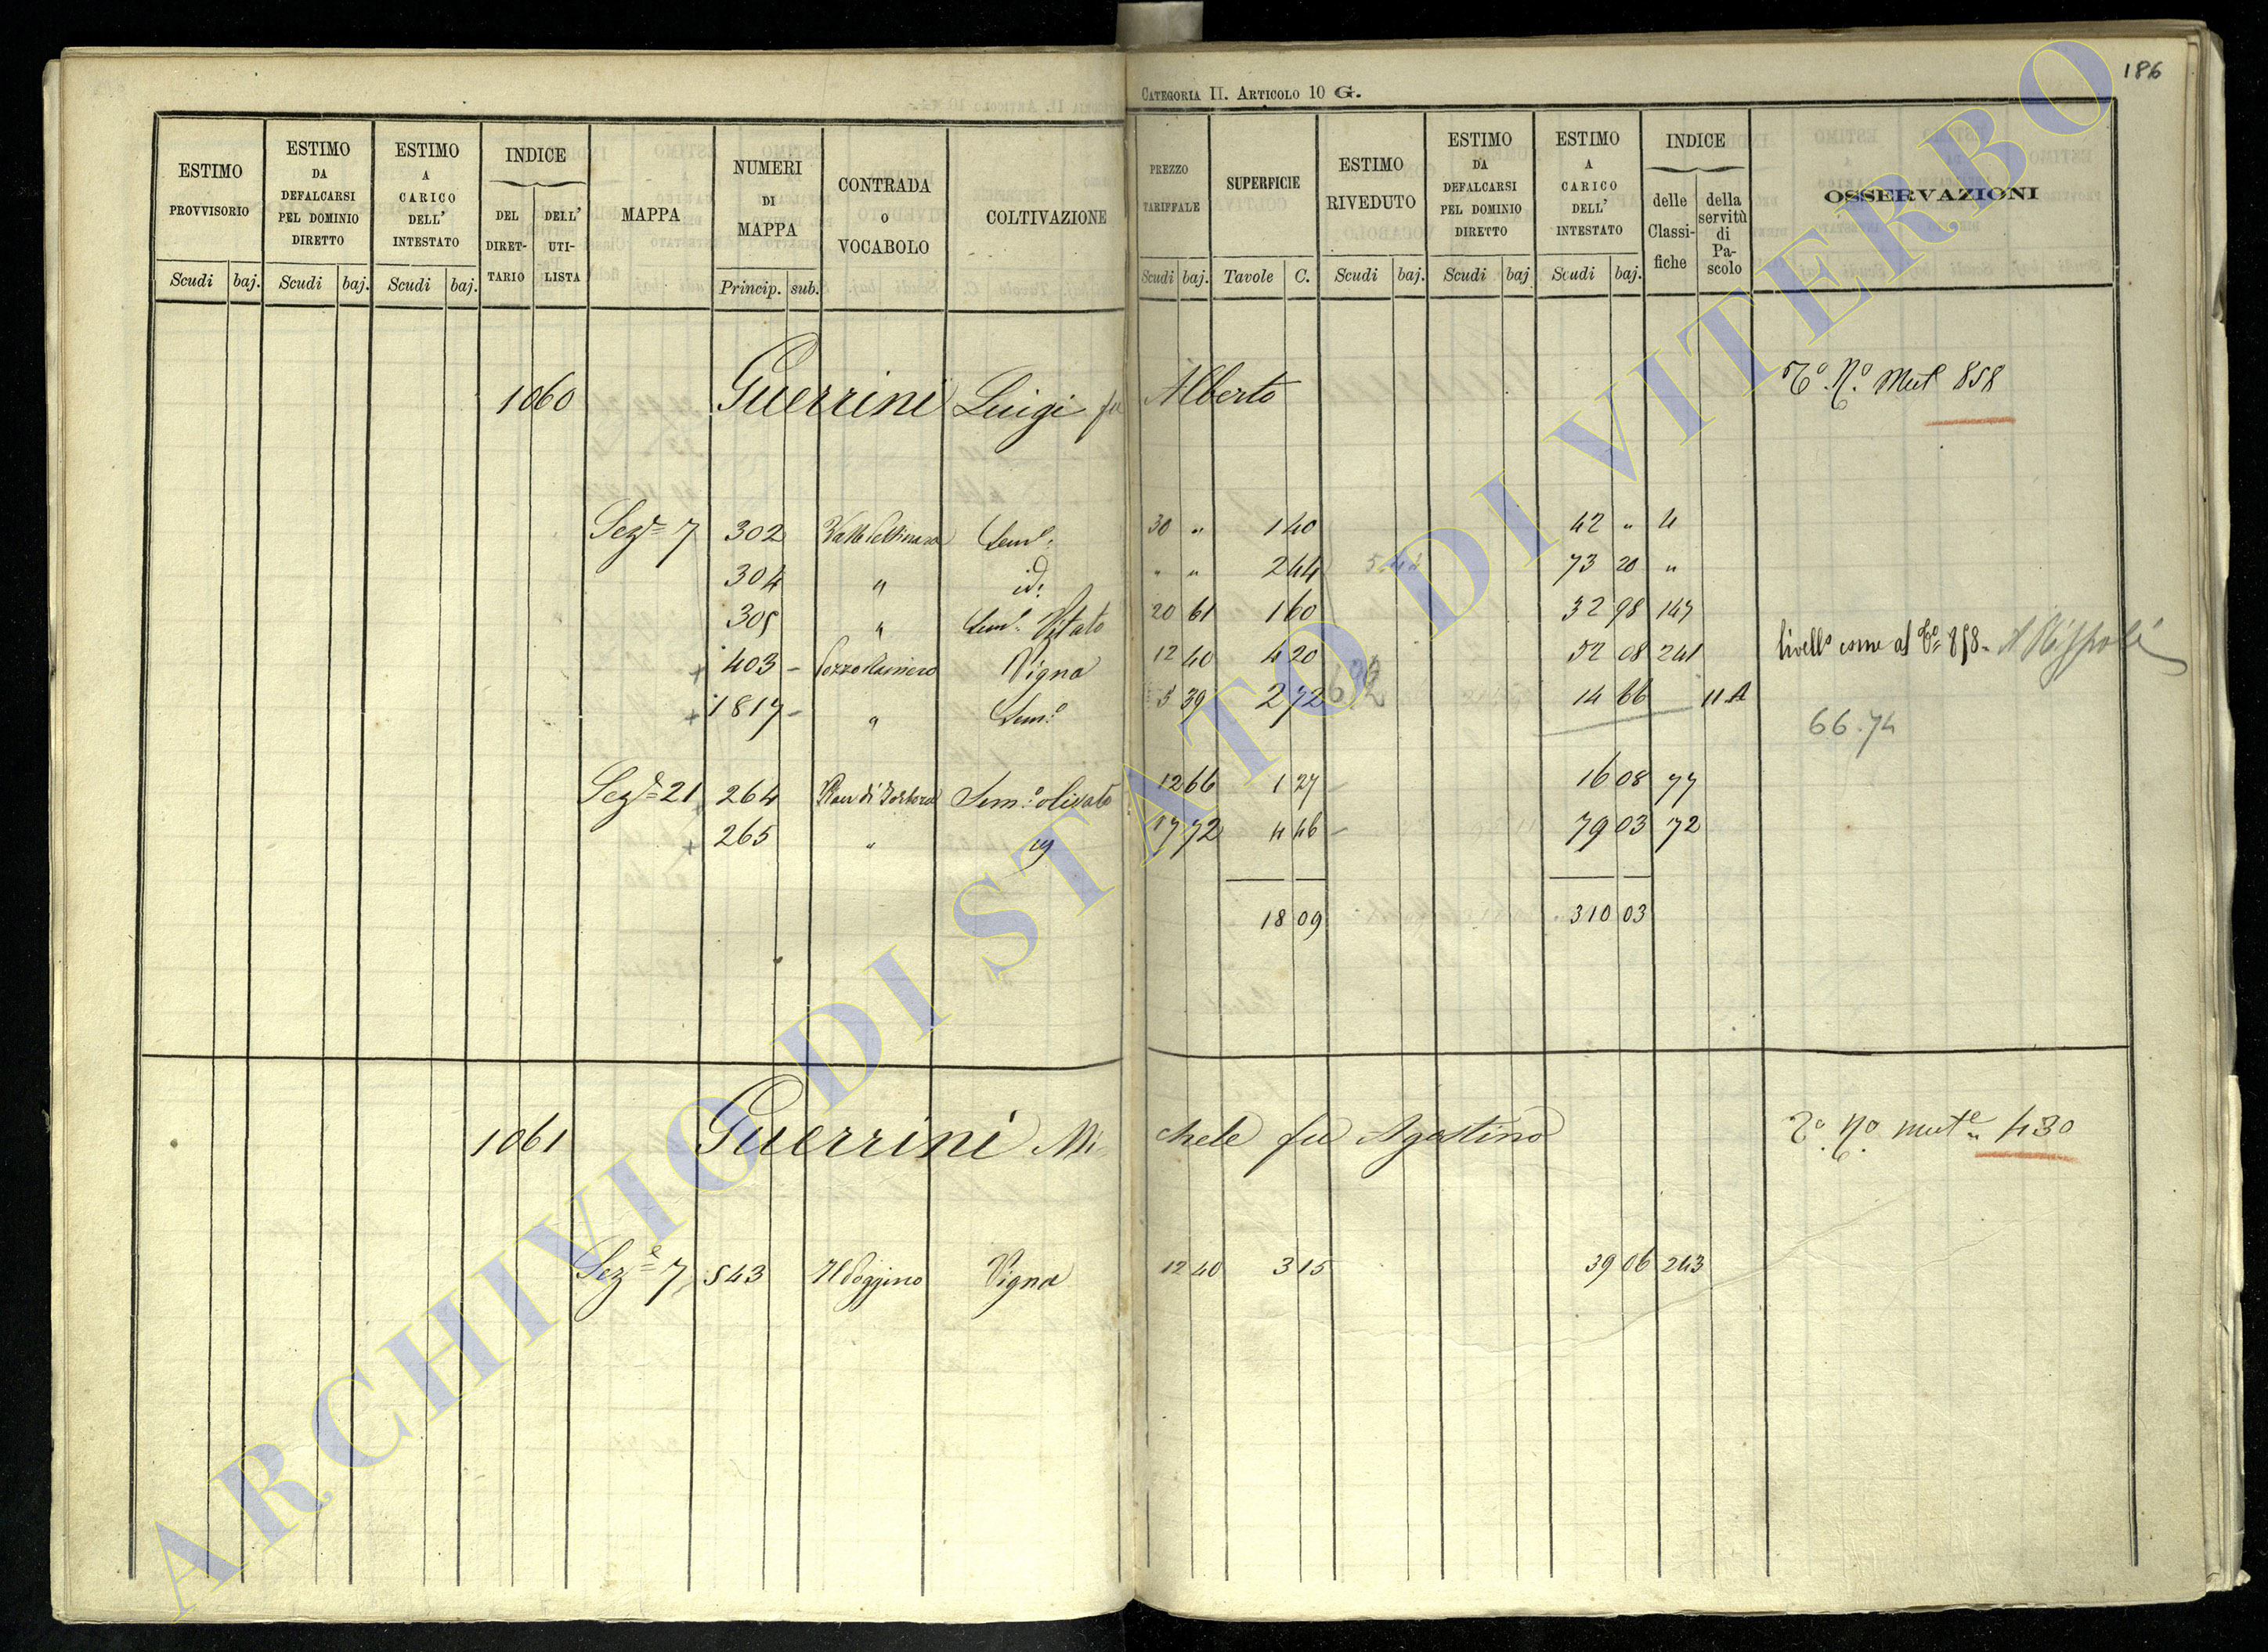 186
CATEGORIA II. ARTICOLO 10 G.
ESTIMO PROVVISORIO Scudi baj.
ESTIMO DA DEFALCARSI PEL DOMINIO DIRETTO Scudi baj.
ESTIMO A CARICO DELL' INTESTATO Scudi baj.
INDICE DEL DIRET- TARIO DELL' UTI- LISTA
MAPPA
NUMERI DI MAPPA Princip. sub.
CONTRADA O VOCABOLO
COLTIVAZIONE
PREZZO TARIFFALE Scudi baj.
SUPERFICIE Tavole C.
ESTIMO RIVEDUTO Scudi baj.
ESTIMO DA DEFALCARSI PEL DOMINIO DIRETTO Scudi baj
ESTIMO A CARICO DELL' INTESTATO Scudi baj.
INDICE delle Classi- fiche della servitù di Pa- scolo
OSSERVAZIONI
1060 Guerrini Luigi fu Alberto Tº. Nº. Mut 858
Sez.e 7 302 Sem.º 30 " 1 40 42 " 4
304 " id. " " 2 44 73 20 "
305 " Sem.º Vitato 20 61 1 60 32 98 147
+ 403 - Vigna 12 40 4 20 52 08 241 livello come al Tº 858
+ 1817 - " Sem.º 5 39 2 72 14 66 11 A
66.74
Sez.e 21 264 Sem.º olivato 12 66 1 27 16 08 77
+ 265 " 17 72 4 46 79 03 72
18 09 310 03
1061 Guerrini Michele fu Agostino Tº. Nº. mut.e 430
Sez.e 7 543 Il Poggino Vigna 12 40 3 15 39 06 243
ARCHIVIO DI STATO DI VITERBO